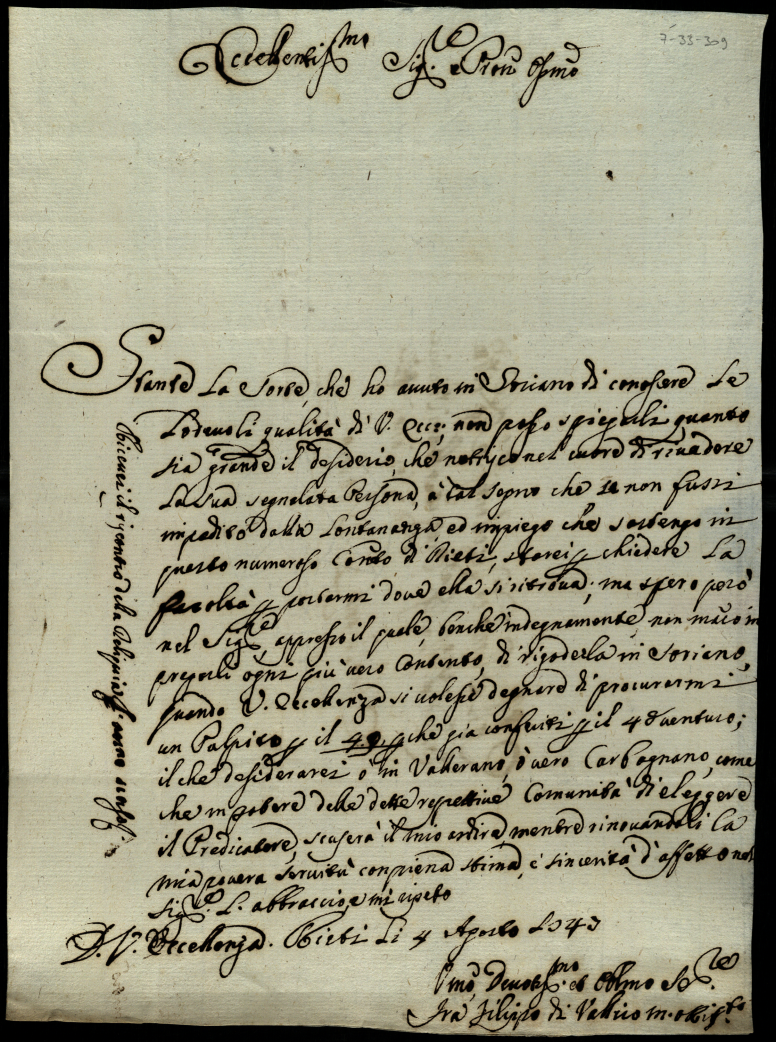 7-33-309
Eccellentissmo Sig.re e Pron Ossmo
Stante La Sorte, che ho avuto in Soriano di conoscere Le
Lodevoli qualità di V. Ecc: non posso spiegarli quanto
sia grande il desiderio, che nutrisco nel cuore di rivedere
La sua segnalata Persona, à tal segno che se non fussi
impedito dalla Lontananza, ed impiego che sostengo in
questo numeroso Conto di Rieti, starei p chiedere La
facoltà p portarmi dove ella si ritrova; ma spero però
nel Sigre, appresso il quale, benche indegnamente, non maco in
pregarli ogni più vero Contento, di rigoderla in Soriano,
quando V. Eccellenza si volesse degnare di procurarmi
un Pulpito p il 49 p che già conferiti p il 48 venturo;
il che desiderarei ò in Vallerano, ò vero Carbognano, come
che in potere delle dette respettive Comunità di eleggere
il Predicatore, scuserà il mio ardire, mentre rinovandoli La
mia povera servitù con piena stima, e sincerità d'affetto nel
Sig.re L. abbraccio, e mi ripeto
D. V. Eccellenza. Rieti Li 4 Agosto 1747
Umo Devotissmo et Obblmo Se.re
Fra Filippo di Vallico m. oss.
Ricevei il riscontro della Reliquia anno